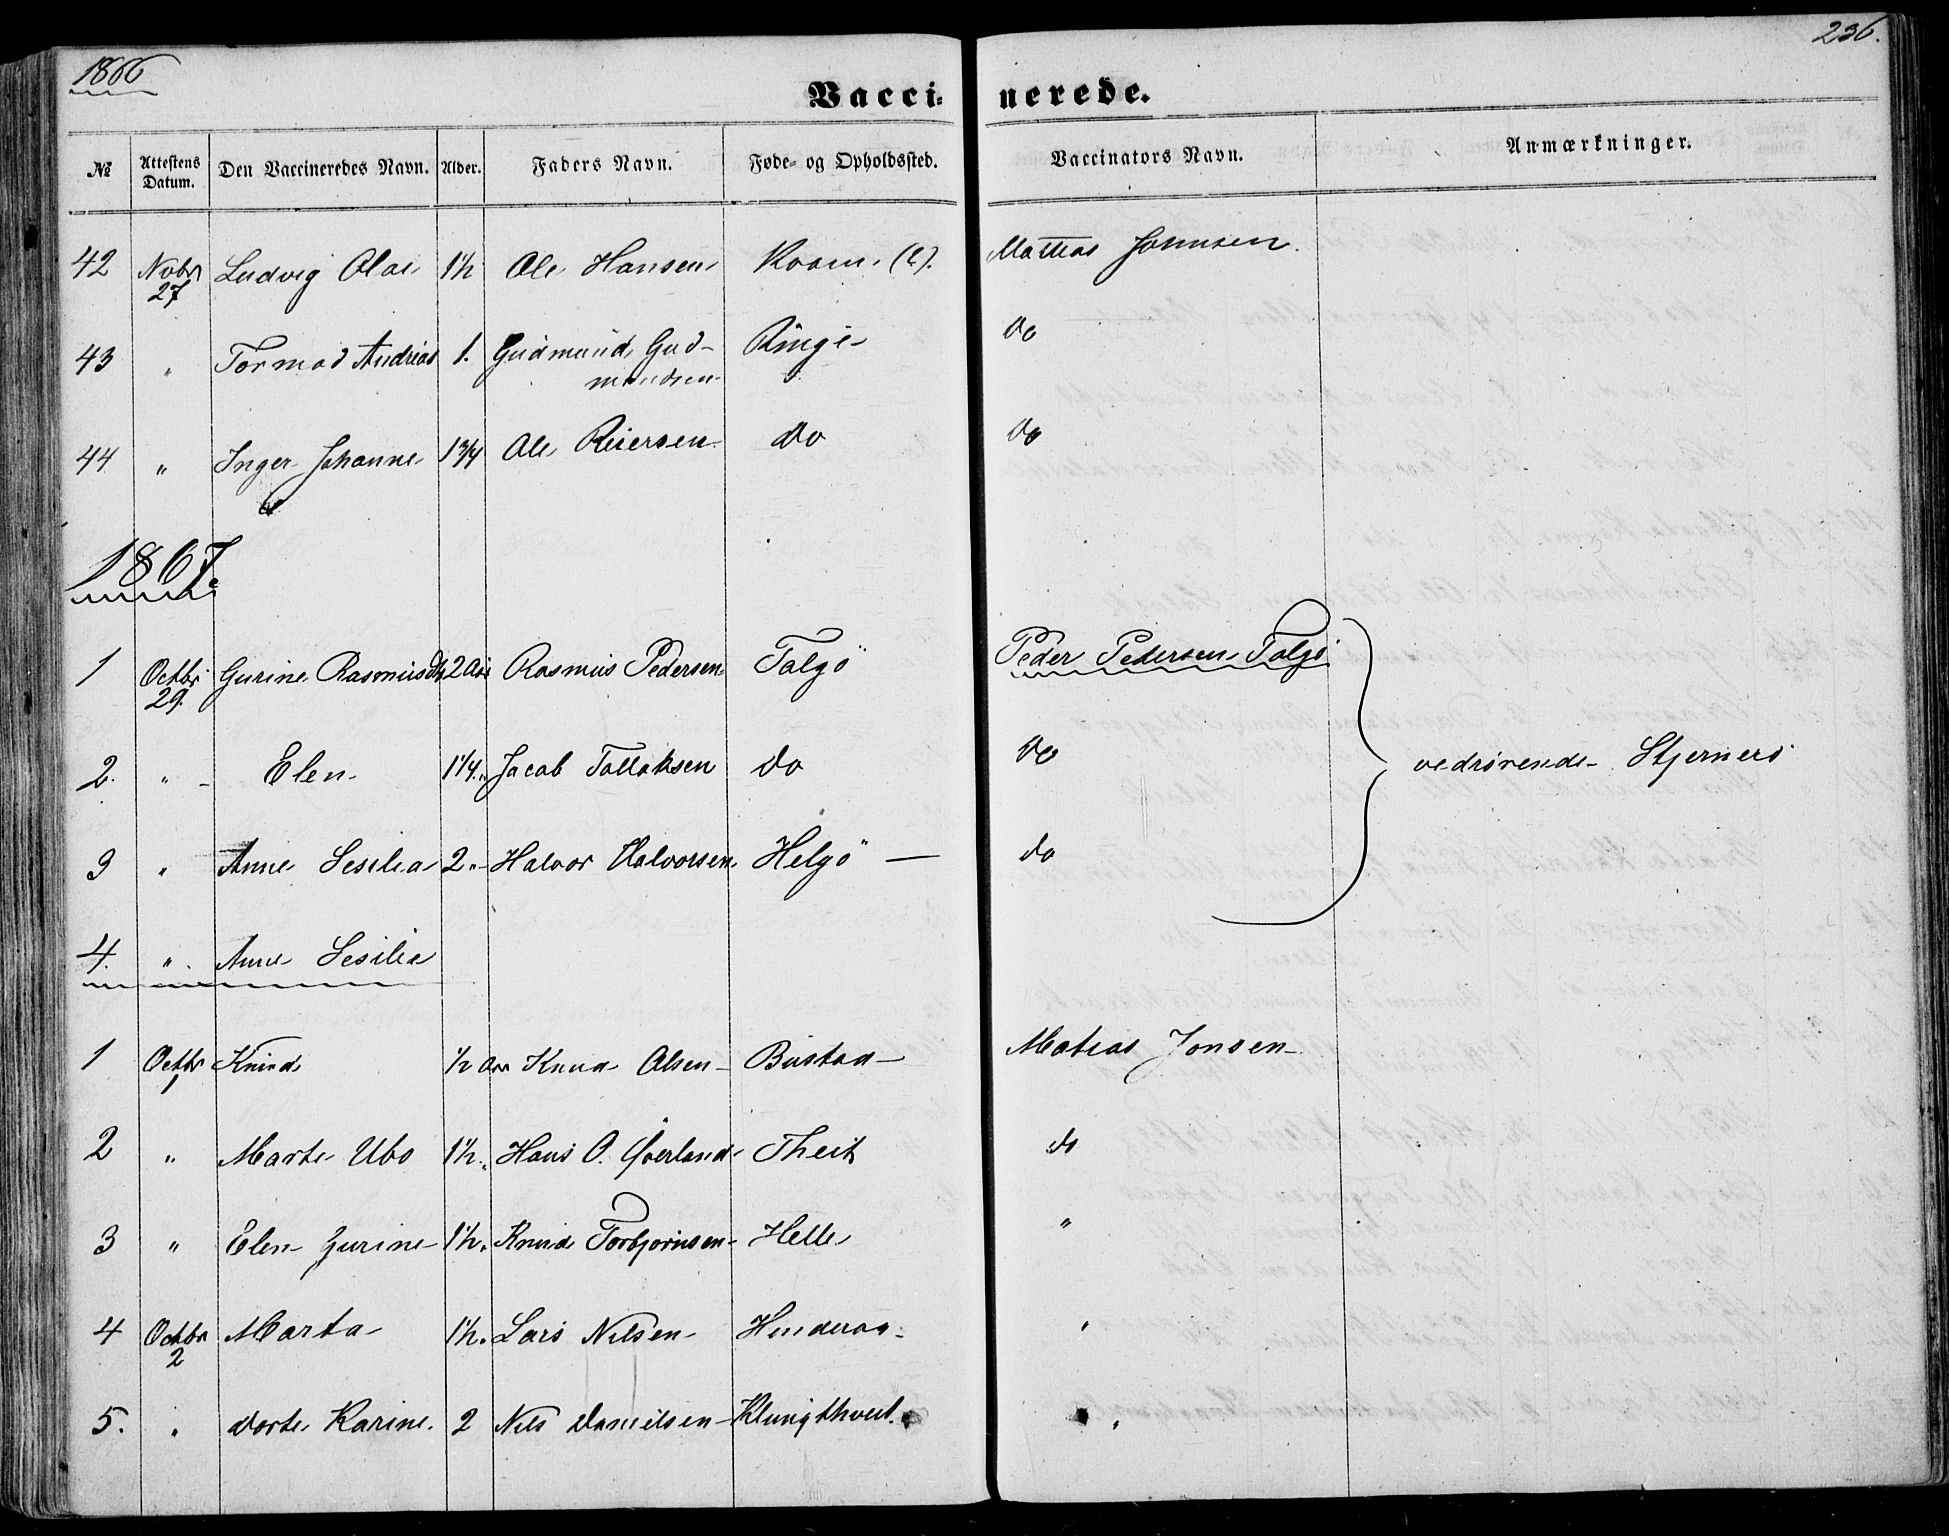 1866
236.
Vacci- nerede.
№ Attestens Datum. Den Vaccineredes Navn. Alder. Faders Navn. Føde- og Opholdssted. Vaccinators Navn. Anmærkninger.
42 Novbr 27 Ludvig Olai 1½ Ole Hansen Mattias Johnsen.
43 " Tormod Andreas 1. Gudmund Gud-
mundsen Ringe do
44 " Inger Johanne 1¾ Ole Reiersen do do
1867.
1 Octbr 29. Gurine Rasmusdtr 2 Aar Rasmus Pedersen Talgö Peder Pedersen Talgö
2. " Elen 1¼ " Jacob Tollaksen do do vedrörende Stjernerö
3 " Anne Sesilia 2 " Halvor Halvorsen Helgö — do
4. " Anne Sesilia
1 Octbr 1 Knud ½ Aar Knud Olsen Bustad Matias Jonsen
2 " Marte Ubo 1½ " Hans O. Øverland Theit do
3 " Elen Gurine 1½ " Knud Torbjørnsen Helle "
4 Octbr 2 Marta 1½ " Lars Nilsen Hinderaa "
5. " Dorte Karine 2 Nils Danielsen Klungthveit "